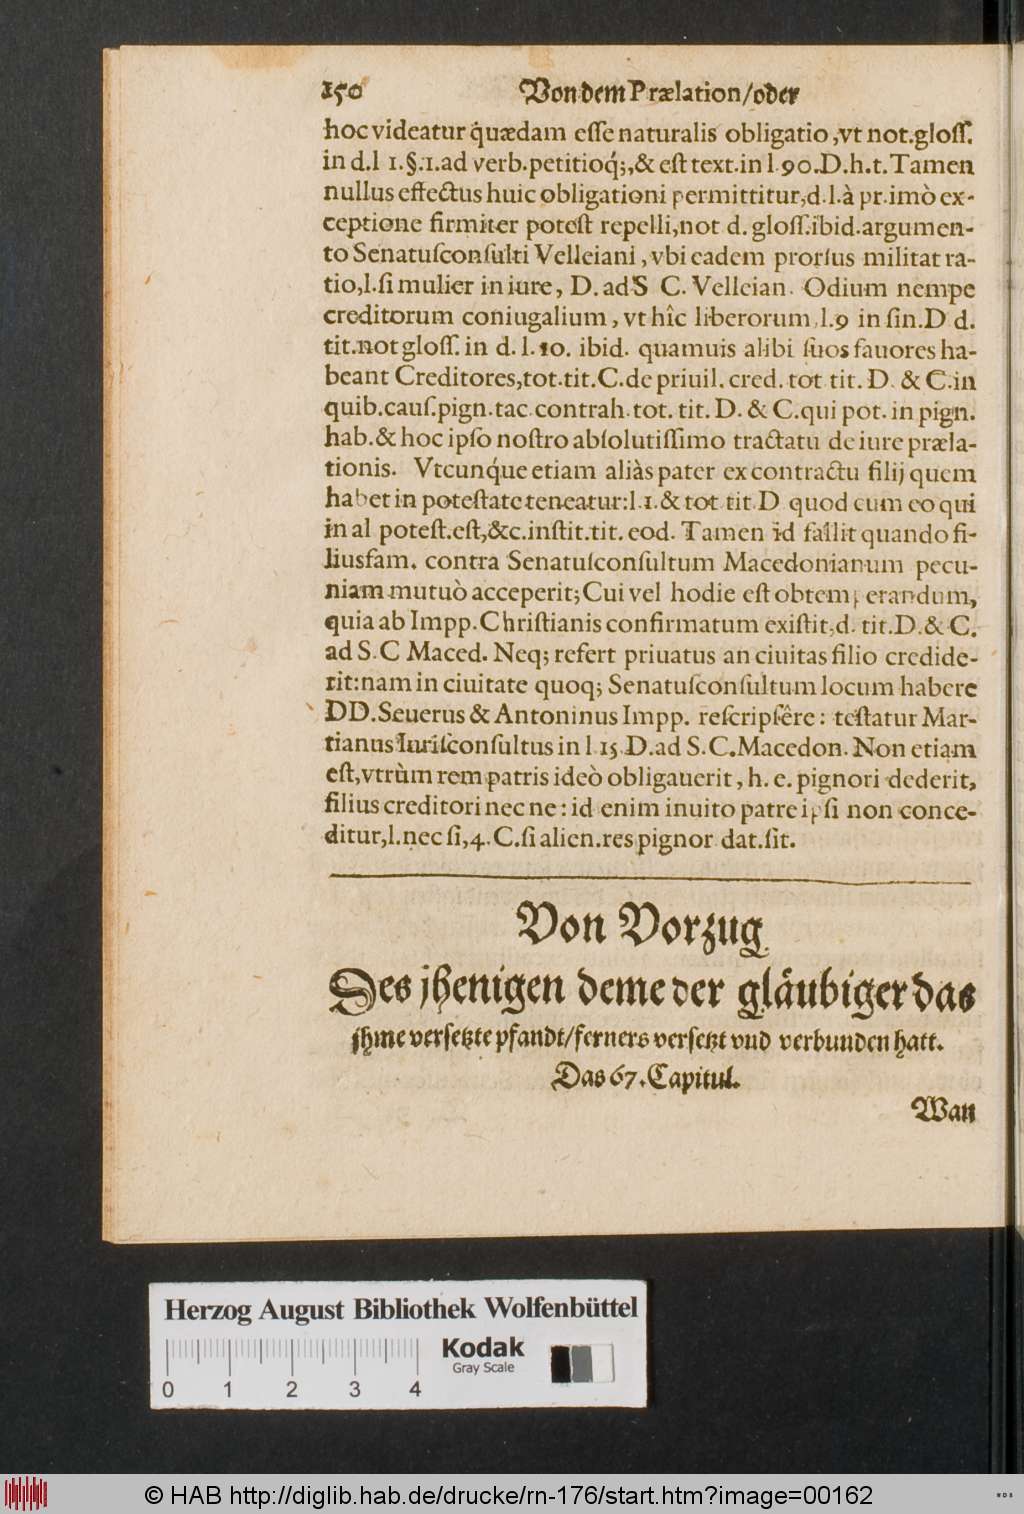 150 Von dem Prælation/oder
hoc videatur q́uædam eſſe naturalis obligatio, vt not. gloſſ.
in d.l 1.§.1.ad verb.petitioq́;,& eſt text.in l.90.D.h.t.Tamen
nullus effectus huic obligationi permittitur,d.l.à pr.imò ex-
ceptione firmiter poteſt repelli,not d. gloſſ.ibid.argumen-
to Senatuſconſulti Velleiani, vbi eadem prorſus militat ra-
tio,l.ſi mulier in iure, D. ad S C. Velleian. Odium nempe
creditorum coniugalium, vt hîc liberorum,l.9 in fin.D d.
tit.not gloſſ. in d. l. 10. ibid. quamuis alibi ſuos fauores ha-
beant Creditores,tot.tit.C.de priuil. cred. tot tit. D. & C.in
quib.cauſ.pign.tac.contrah.tot. tit. D. & C.qui pot. in pign.
hab.& hoc ipſo noſtro abſolutiſſimo tractatu de iure præla-
tionis. Vtcunq́ue etiam aliàs pater ex contractu filij quem
habet in poteſtate teneatur:l.1.& tot tit.D quod cum eo qui
in al poteſt.eſt,&c.inſtit.tit. eod. Tamen id fallit quando fi-
liusfam. contra Senatuſconſultum Macedonianum pecu-
niam mutuò acceperit; Cui vel hodie eſt obtemperandum,
quia ab Impp. Chriſtianis confirmatum exiſtit,d. tit.D.& C.
ad S.C Maced. Neq; refert priuatus an ciuitas filio credide-
rit: nam in ciuitate quoq; Senatuſconſultum locum habere
DD.Seuerus & Antoninus Impp. reſcripſêre: teſtatur Mar-
tianus Iuriſconſultus in l 15 D.ad S.C.Macedon. Non etiam
eſt, vtrùm rem patris ideò obligauerit, h. e. pignori dederit,
filius creditori nec ne: id enim inuito patre ipſi non conce-
ditur,l.nec ſi,4.C.ſi alien.res pignor dat.ſit.
Von Vorzug
Des jhenigen deme der gläubiger das
jhme verſetzte pfandt/ferners verſetzt vnd verbunden hatt.
Das 67. Capitul.
Wan
Herzog August Bibliothek Wolfenbüttel
Kodak
Gray Scale
0 1 2 3 4
© HAB http://diglib.hab.de/drucke/rn-176/start.htm?image=00162